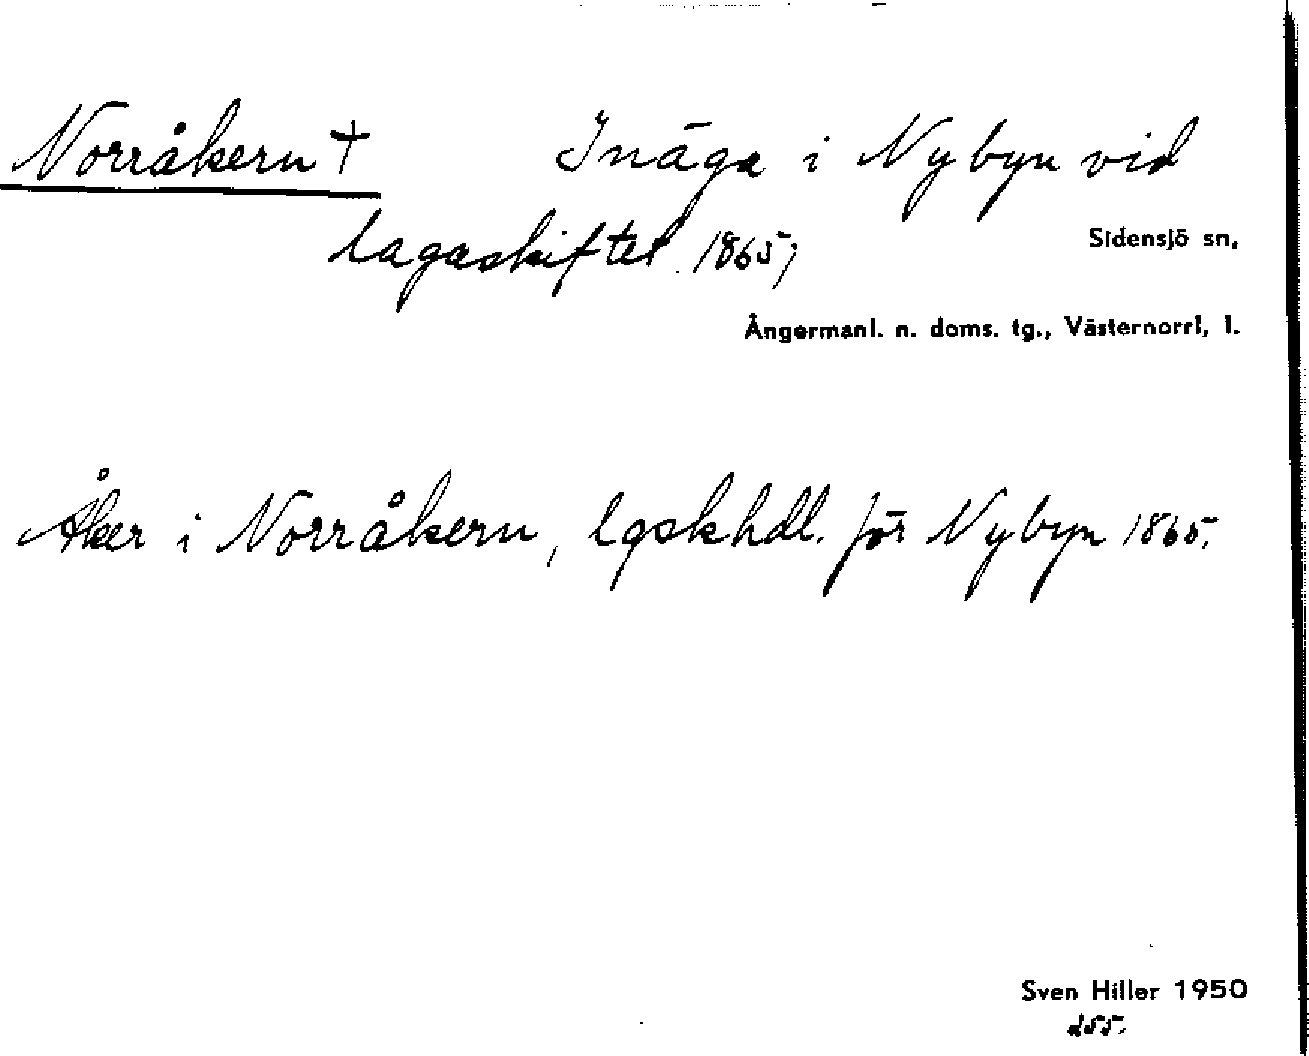 Norråkern † Inäga i Nybyn vid
lagaskiftet 1865;
Sidensjö sn.
Ångermanl. n. doms. tg., Västernorrl. l.
Åker i Norråkern, lgskhdl. för Nybyn 1865.
Sven Hiller 1950